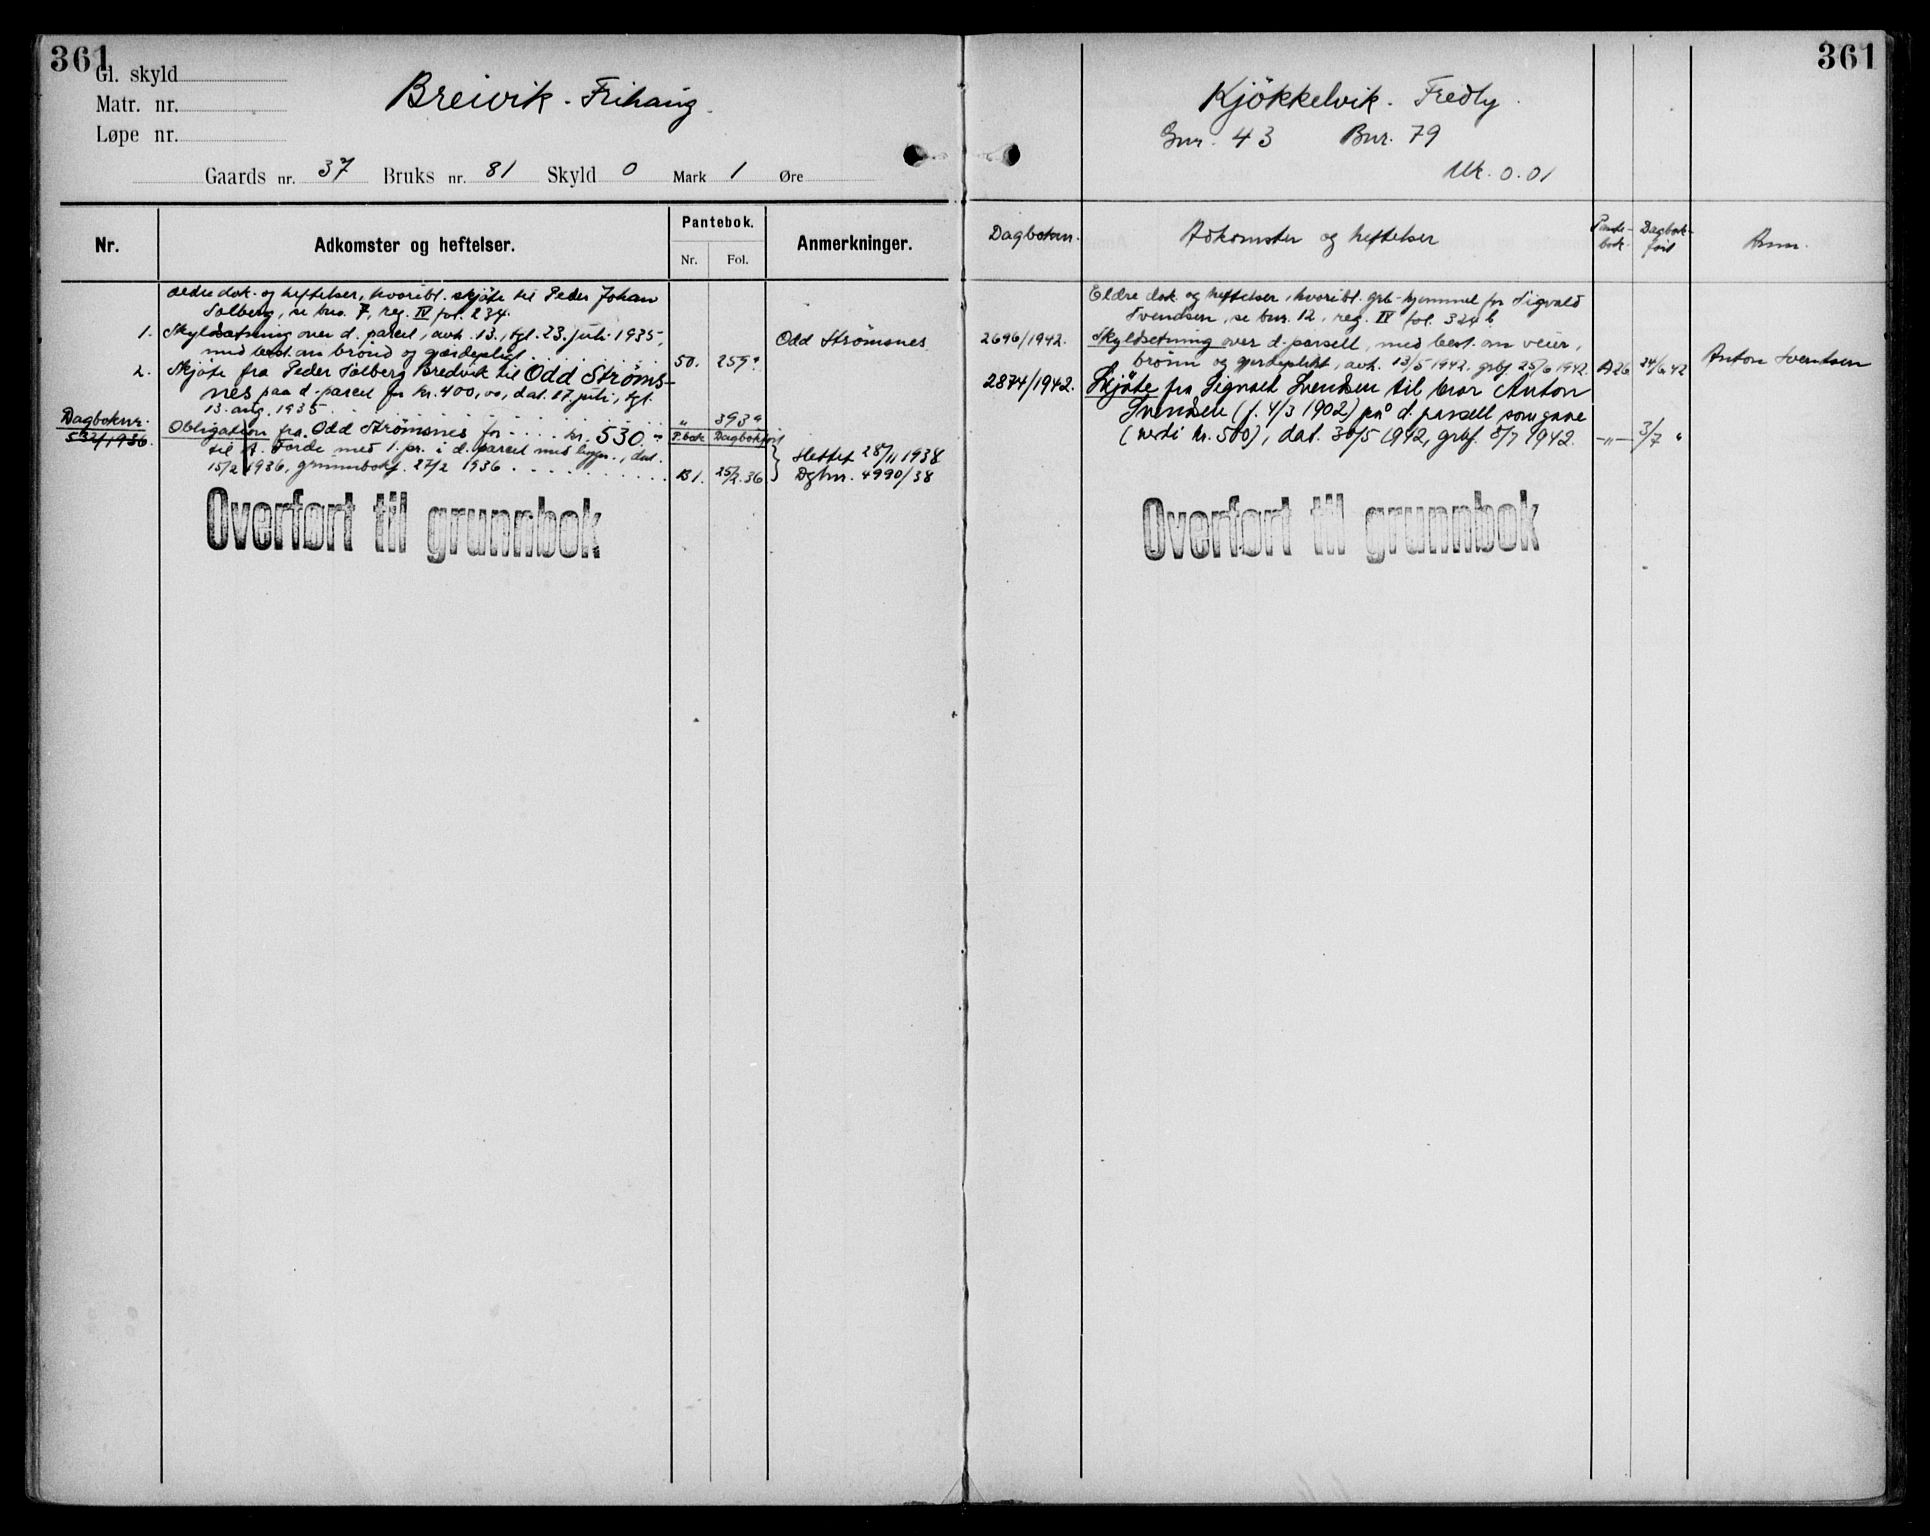 361
Gl. skyld
Matr. nr.
Løpe nr.
Breivik - Frihaug.
Gaards nr. 37 Bruks nr. 81 Skyld 0 Mark 1 Øre
Nr. Adkomster og heftelser. Pantebok. Nr. Fol. Anmerkninger.
Ældre dok. og heftelser, hvoribl. skjøte til Peder Johan
Solberg, se bno. 7, reg. IV fol. 234.
1. Skyldsetning over d. parcel, avh. 13., tgl. 23. juli 1935,
med best. om brönd og gjærdepligt 50. 259a Odd Strømsnes
2. Skjøte fra Peder Solberg Bredvik til Odd Strøms-
nes paa d. parcel for kr. 400,00, dat. 17. juli, tgl.
13. aug. 1935 " 393a
Dagboknr. P.bok Dagbokført
532/1936. Obligation fra Odd Strømsnes for kr. 530.-
til A. Førde med 1. pr. i d. parcel med bygn., dat.
15/2 1936, grunnbokf. 27/2 1936 B 1. 25/2.36
Slettet 28/11 1938
Dgbnr. 4990/38
Overført til grunnbok
361
Kjökkelvik - Fredly.
Gnr. 43 Bnr. 79
Mk. 0.01
Dagboknr. Adkomster og heftelser Pante-bok. Dagbok-ført Anm.
Eldre dok. og heftelser, hvoribl. grb.-hjemmel for Sigvald
Svendsen, se bnr. 12, reg. IV fol. 324 b.
2696/1942. Skyldsetning over d. parsell, med best. om veier,
brønn og gjerdeplikt, avh. 13/5 1942, grbf. 25/6 1942. A26 24/6 42 Anton Svendsen
2874/1942. Skjöte fra Sigvald Svendsen til bror Anton
Svendsen (f. 4/3 1902) på d. parsell som gave
(verdi kr. 500), dat. 30/5 1942, grbf. 8/7 1942. -"- 3/7 "
Overført til grunnbok